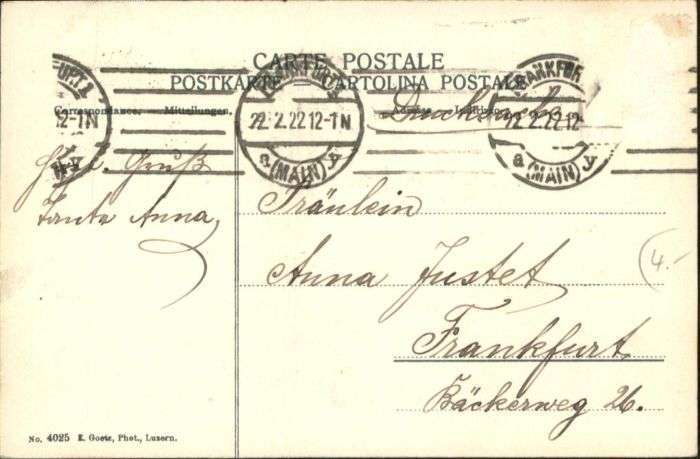 CARTE POSTALE
POSTKARTE – CARTOLINA POSTALE
Correspondance. Mittheilungen.
Drucksache
FRANKFURT
22.2.22 12-1N
a (MAIN) y
FRANKFUR
22.2.22 12
a (MAIN) y
FURT
2.12-1N
Gruß
Tante Anna
Fräulein
Anna Justet
Frankfurt
Bäckerweg 26.
4.-
No. 4025 E. Goetz, Phot., Luzern.